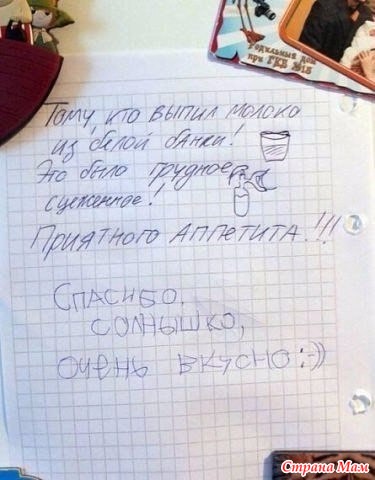 Родильный дом
при ГКБ №15
Тому, кто выпил молоко
из белой банки!
Это было грудное
сцеженное!
Приятного аппетита!!!
Спасибо.
солнышко,
очень вкусно:-))
Страна Мам